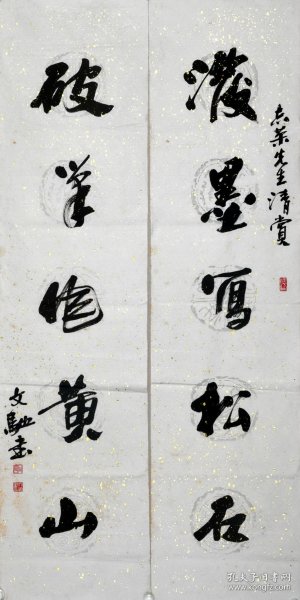 志荣先生清赏
潑墨寫松石
破筆作黄山
文馳书
孔夫子旧书网